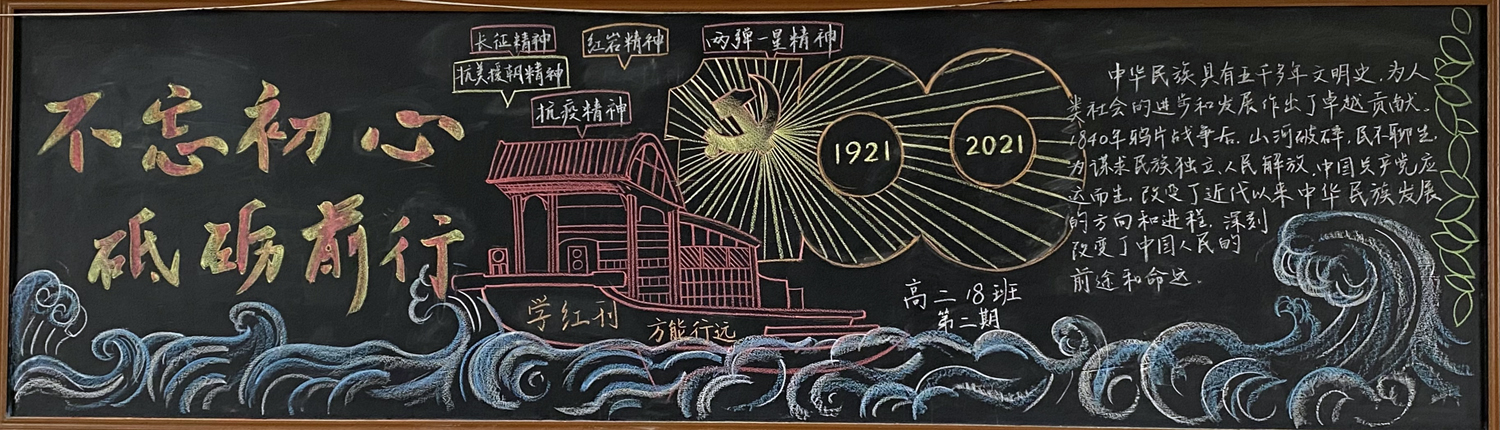 不忘初心
砥砺前行
长征精神
红岩精神
两弹一星精神
抗美援朝精神
抗疫精神
1921
2021
学红刊
方能行远
高二18班
第二期
中华民族具有五千多年文明史,为人
类社会的进步和发展作出了卓越贡献。
1840年鸦片战争后,山河破碎,民不聊生,
为谋求民族独立、人民解放,中国共产党应
运而生,改变了近代以来中华民族发展
的方向和进程,深刻
改变了中国人民的
前途和命运。